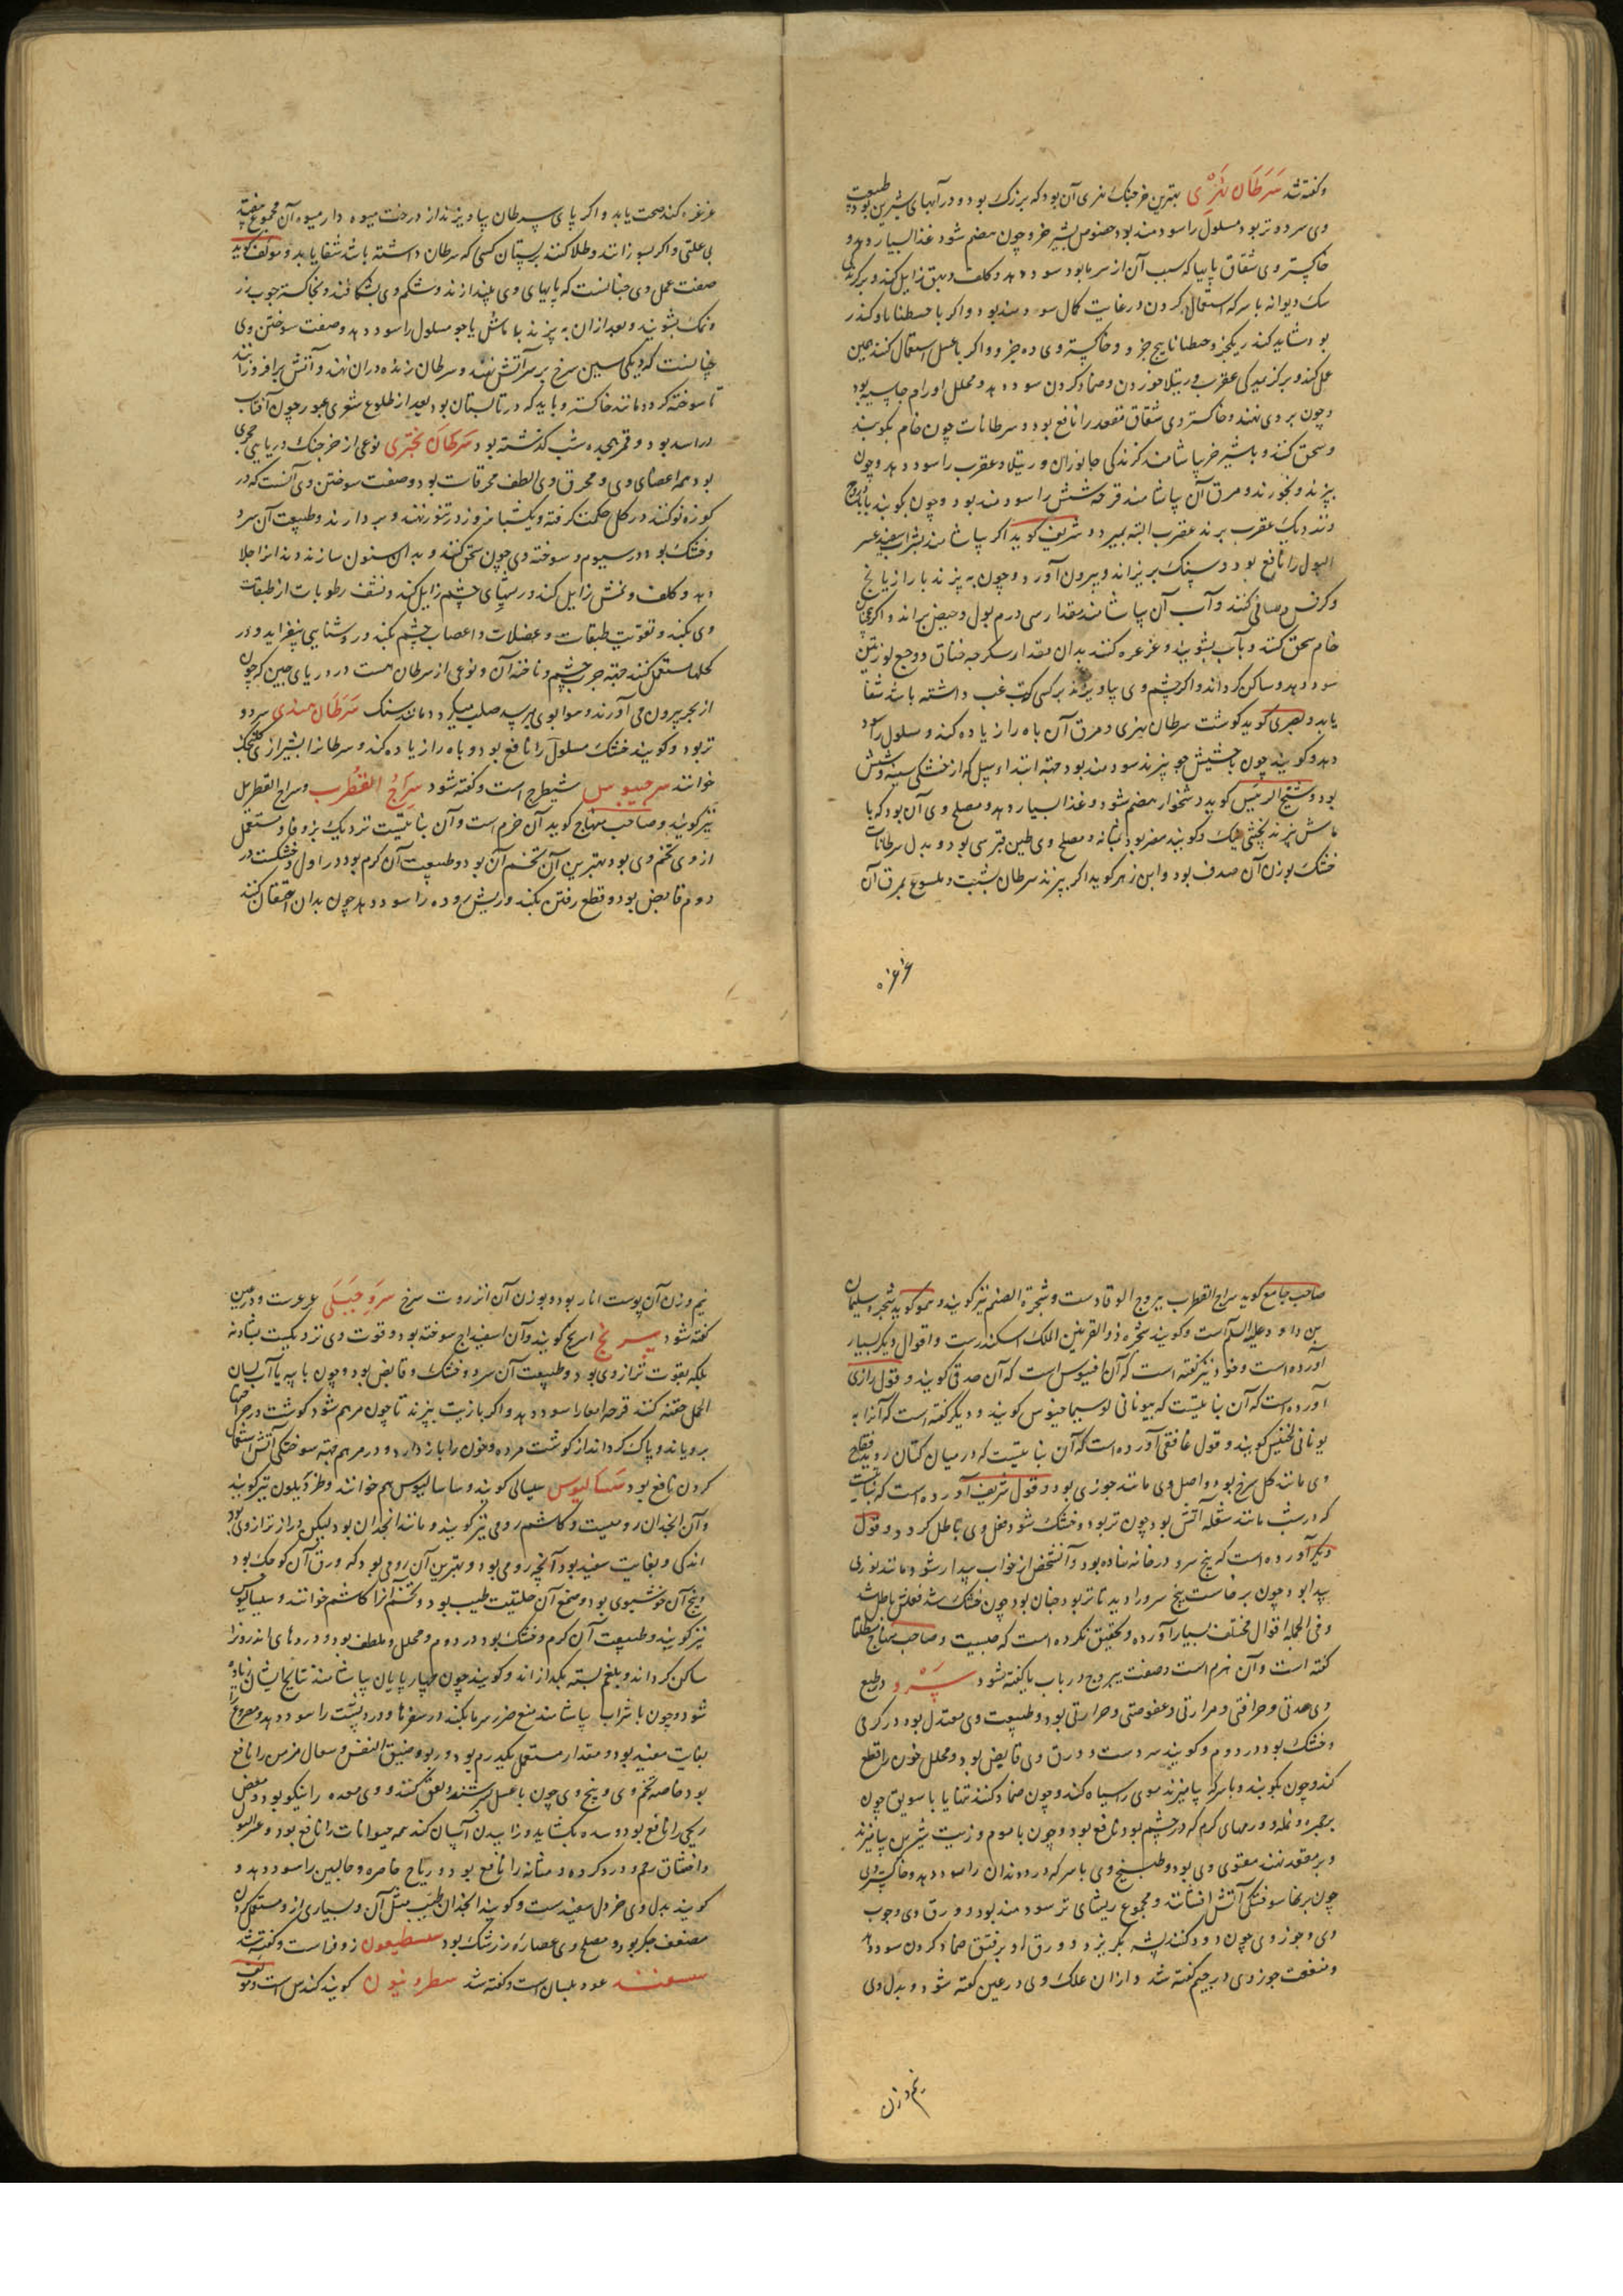 وکفته شد سَرَطَان نَهْرِی بهترین خرچنک نهری آن بود که بزرک بود و در آبهای شیرین بود طبیعت
وی سرد و تر بود مسلول را سودمند بود خصوص بشیر خر و چون هضم شود غذا بسیار دهد و
خاکستر وی شقاق پا بیا که سبب آن از سرما بود سود دهد و کلف و بهق زایل کند و بر کزندکی
سک دیوانه با سرکه استعمال کردن در غایت کمال سودمند بود و اکر با جنطیانا و کندر
بود شاید کندر یکجزو جنطیانا پنج جزو و خاکستر وی ده جزو و اکر با عسل استعمال کنند همین
عمل کند و بر کزیدکی عقرب و رتیلا خوردن و ضماد کردن سود دهد و محلل اورام جاسیه بود
و چون بر وی نهند و خاکستر وی شقاق مقعد را نافع بود و سرطانات چون خام بکوبند
و سحق کنند و با شیر خر بیاشامند کزندکی جانوران و رتیلا و عقرب را سود دهد و چون
بپزند و بخورند و مرق آن بیاشامند قرحه شش را سودمند بود و چون بکوبند با بادروج
و نزدیک عقرب برند عقرب البته بمیرد و شریف کوید اکر بیاشامند بشراب سفید عسر
البول را نافع بود و سنک بریزاند و بیرون آورد و چون بپزند با رازیانج
و کرفس و صافی کنند و آب آن بیاشامند مقدار سی درم بول و حیض براند و اکر همچنان
خام سحق کنند و بآب بشویند و غرغره کنند بدان مقدار سکرجه خناق و وجع لوزتین
سود دهد و ساکن کرداند و اکر چشم وی بیاویزند بر کسی که تب غب داشته باشد شفا
یابد و بصری کوید کوشت سرطان نهری و مرق آن باه را زیاده کند و مسلول را سود
دهد و کویند چون با حشیش جو بپزند سودمند بود جهة ابتداء سل که از خشکی سینه و شش
بود و شیخ الرئیس کوید دشخوار هضم شود و غذا بسیار دهد و مصلح وی آن بود که با
ماش بپزند پختنی نیک و کویند مضر بود بمثانه و مصلح وی طین قبرسی بود و بدل سرطانات
خشک بوزن آن صدف بود و ابن زهر کوید اکر بپزند سرطان بشبت و ملسوع بمرق آن
غرغره
غرغره کند صحت یابد و اکر پای سرطان بیاویزند از درخت میوه دار میوه آن مجموع بیفتد
بی علتی و اکر بسوزانند و طلا کنند بر پستان کسی که سرطان داشته باشد شفا یابد و مولف کوید
صفت عمل وی چنانست که پایهای وی بیندازند و شکم وی بشکافند و بخاکستر چوب رز
و نمک بشویند و بعد از ان بپزند با ماش یا جو مسلول را سود دهد و صفت سوختن وی
چنانست که دیکی مسین سرخ بر سر آتش نهند و سرطان زنده در ان نهند و آتش برافروزانند
تا سوخته کردد مانند خاکستر و باید که در تابستان بود بعد از طلوع شعری عبور چون آفتاب
در اسد بود و قمر هجده شب کذشته بود سَرَطَان بَحْرِی نوعی از خرچنک دریایی حجری
بود همه اعضای وی و محرق وی الطف محرقات بود و صفت سوختن وی آنست که در
کوزه نو کنند در کل حکمت کرفته و یکشبانروز در تنور نهند و بردارند و طبیعت آن سرد
و خشک بود در سیوم و سوخته وی چون سحق کنند و بدان سنون سازند دندانرا جلا
دهد و کلف و نمش زایل کند و ریشهای چشم زایل کند و نشف رطوبات از طبقات
وی بکند و تقویت طبقات و عضلات و اعصاب چشم بکند و روشنایی بیفزاید و در
کحلها مستعمل کنند جهة جرب چشم و ناخنه آن و نوعی از سرطان هست در دریای چین که چون
از بحر بیرون می آورند و هوا بوی میرسد صلب میکردد مانند سنک سَرَطَان هندی سرد و
تر بود و کویند خشک مسلول را نافع بود و باه را زیاده کند و سرطانرا بشیرازی کلنجک
خوانند سرحیوس شیطرج است و کفته شود سِرَاجُ القُطْرُب و سراج القطریل
نیز کویند و صاحب منهاج کوید آن خرم است و آن نباتیست نزدیک بزوفا و مستعمل
از وی تخم وی بود بهترین آن تخم آن بود و طبیعت آن کرم بود در اول و خشک در
دوم قابض بود و قطع رفتن بکند و ریش روده را سود دهد چون بدان احتقان کنند
صاحب جامع کوید سراج القطرب یبروج الوقادست و شجرة الصنم نیز کویند و هم کوید شجره سلیمان
بن داود علیه السلام است و کویند شجره ذوالقرنین الملک اسکندرست و اقوال دیکر بسیار
آورده است و خود نیز کفته است که آن افیوس است که آن صدقی کویند و قول رازی
آورده است که آن نباتیست که بیونانی لوسیماخیوس کویند و دیکر کفته است که آنرا به
یونانی لخنیس کویند و قول غافقی آورده است که آن نباتیست که در میان کتان روید فقاح
وی مانند کل سرخ بود و اصل وی مانند جوزی بود و قول شریف آورده است که نباتیست
که در شب مانند شعله آتش بود چون تر بود و خشک شود فعل وی باطل کردد و قول
دیکر آورده است که بیخ سرو در خانه نهاده بود و آنشخص از خواب بیدار شود مانند نوری
پیدا بود چون برخاست بیخ سرو را دید تا تر بود چنان بود چون خشک شد فعلش باطل شد
و فی الجمله اقوال مختلف بسیار آورده و تحقیق نکرده است که چیست و صاحب منهاج مطلقا
کفته است و آن خرم است و صفت یبروج در باب یا کفته شود سَرْو در طبع
وی حدتی و حرافتی و مرارتی و عفوصتی و حرارتی بود و طبیعت وی معتدل بود در کرمی
و خشک بود در دوم و کویند سردست و ورق وی قابض بود و محلل خون را قطع
کند و چون بکوبند و با سرکه بیامیزند موی را سیاه کند و چون ضماد کنند تنها یا با سویق چون
بر جمره و نمله و ورمهای کرم که در چشم بود نافع بود و چون با موم و زیت شیرین بیامیزند
و بر معده نهند مقوی وی بود و طبیخ وی با سرکه درد دندان را سود دهد و خاکستر وی
چون بر جاء سوختکی آتش افشانند و مجموع ریشهای تر سودمند بود و ورق وی و چوب
وی و جوز وی چون دود کنند پشه بکریزد و ورق او بر فتق ضماد کردن سود دهد
و منفعت جوز وی در جیم کفته شد و از ان علک وی در عین کفته شود و بدل وی
نیم وزن
نیم وزن آن پوست انار بود و بوزن آن انزروت سرخ سَرْوِ جَبَلَی عرعرست و در عین
کفته شود سرنج اسریج کویند و آن اسفیداج سوخته بود و قوت وی نزدیکیت بشادنه
بلکه بقوت تر از وی بود و طبیعت آن سرد و خشک و قابض بود و چون با پیه یا آب لسان
الحمل حقنه کنند قرحه امعا را سود دهد و اکر با زیت بپزند تا چون مرهم شود کوشت در جراحتها
برویاند و پاک کرداند از کوشت مرده و خون را باز دارد و در مرهم جهة سوختکی آتش استعمال
کردن نافع بود سَسَالیوس سیسالی کویند و ساسالیوس هم خوانند و طردیلون نیز کویند
و آن انجدان رومیست و کاشم رومی نیز کویند و مانند انجدان بود لیکن دراز تر از وی بود
اندکی و بغایت سفید بود آنچه رومی بود و بهترین آن رومی بود که ورق آن کوچک بود
و بیخ آن خوشبوی بود و صمغ آن حلتیت طیب بود و تخم آنرا کاشم خوانند و سیسالیوس
نیز کویند و طبیعت آن کرم و خشک بود در دوم و محلل و ملطف بود و دردهای اندرونرا
ساکن کرداند و بلغم بسته بکدازاند و کویند چون چهارپایان بیاشامند نتایج ایشان زیاده
شود و چون با شراب بیاشامند منع ضرر سرما بکند در سفرها و درد پشت را سود دهد و مصروع را
بغایت مفید بود و مقدار مستعمل یکدرم بود و ربو و ضیق النفس و سعال مزمن را نافع
بود خاصه تخم وی و بیخ وی چون با عسل بسرشند و لعق کنند و وی معده را نیکو بود و مغص
ریحی را نافع بود و سده بکشاید و زاییدن آسان کند همه حیوانات را نافع بود و عسر البول
و اختناق رحم و درد کرده و مثانه را نافع بود و ریاح خاصره و حالبین را سود دهد و
کویند بدل وی خردل سفیدست و کویند انجدان طیب مثل آن و بسیاری از و مستعمل کردن
مضعف جکر بود و مصلح وی عصاره زرشک بود سسطیعون زوفراست و کفته شد
سعنند عود بلسان است و کفته شد سطرونیون کویند کندس است و مولف